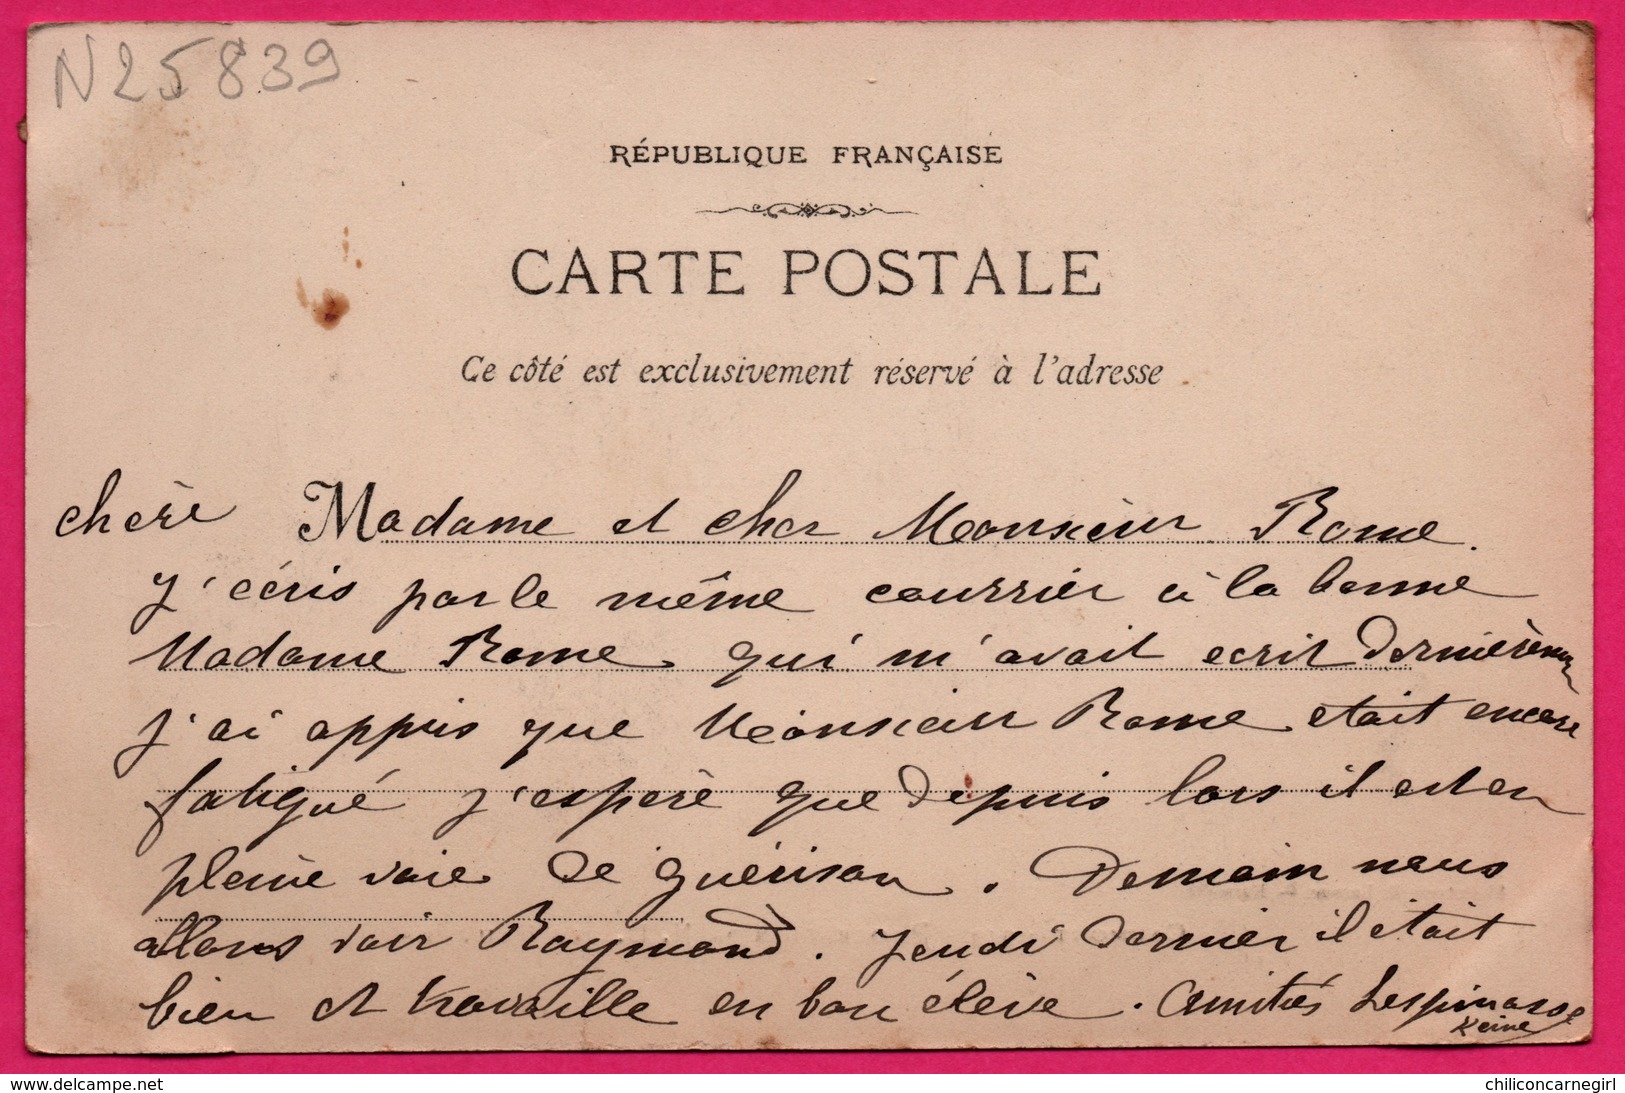 N25839
RÉPUBLIQUE FRANÇAISE
CARTE POSTALE
Ce côté est exclusivement réservé à l'adresse
chère Madame et cher Monsieur Rome.
J'écris par le même courrier à la bonne
Madame Rome qui m'avait ecrit dernièrem
j'ai appris que Monsieur Rome etait encore
fatigué j'espère que depuis lors il est en
pleine voie de guérison. Demain nous
allons voir Raymond. Jeudi dernier il était
bien et travaille en bon élève. Amitiés Lespinasse
Reine
chiliconcarnegirl